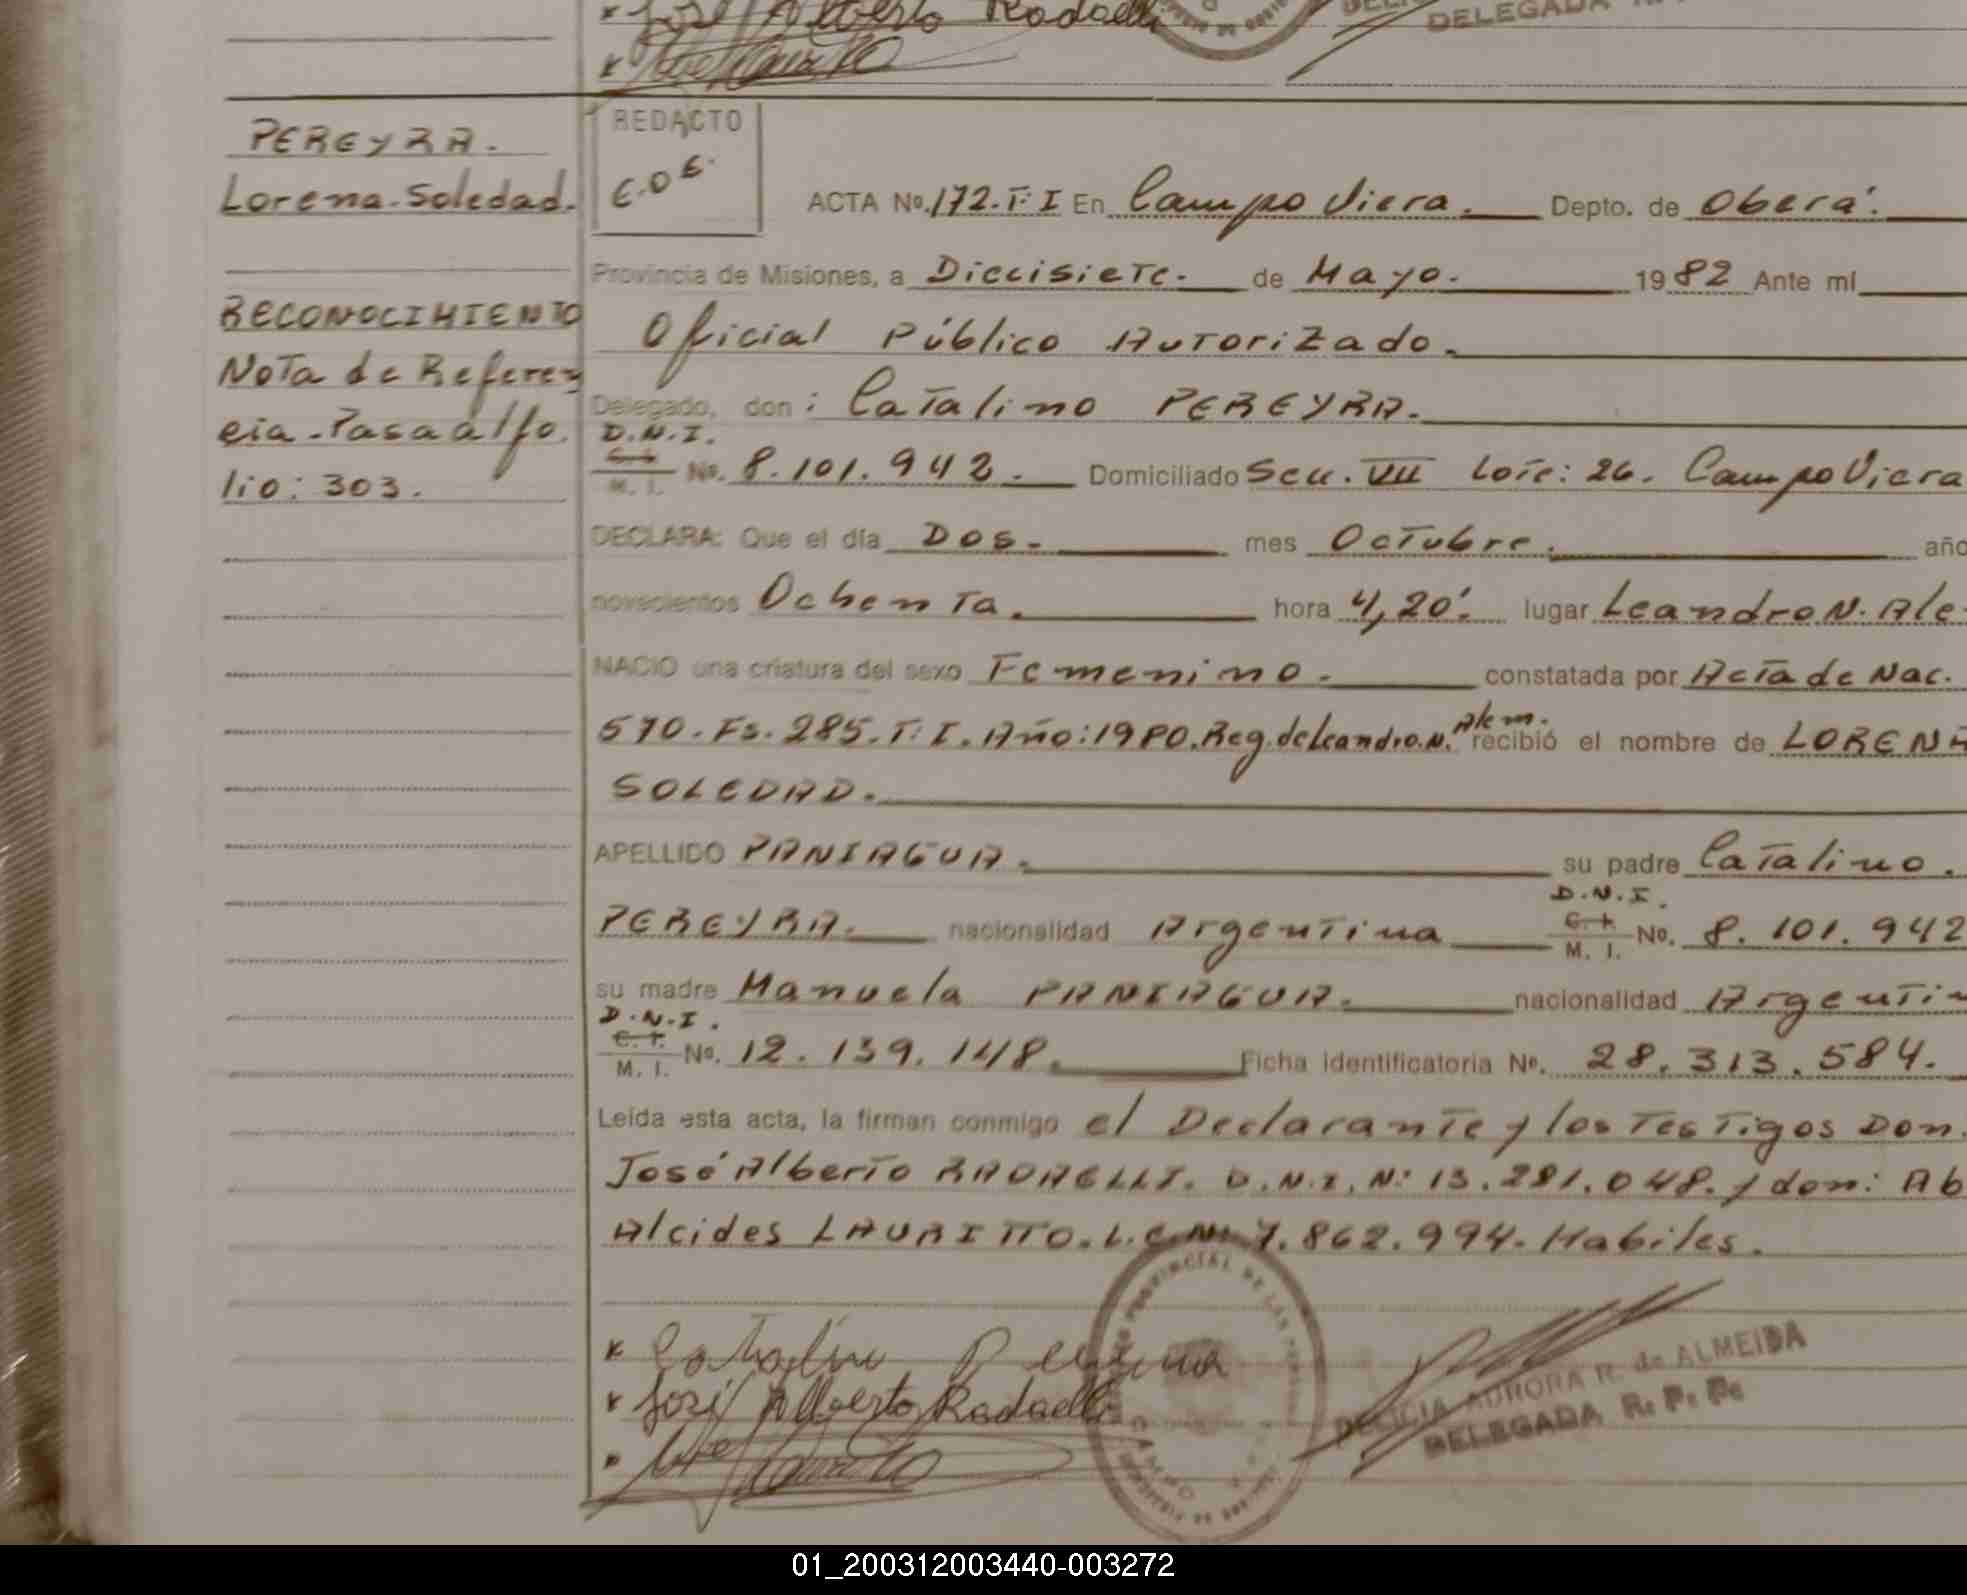 José Alberto Radaelli
DELEGADA
PEREYRA.
Lorena Soledad.
RECONOCIMIENTO
Nota de Referen
cia - Pasa al fo
lio: 303.
REDACTO
ACTA No. 172. T: I En Campo Viera. Depto. de Oberá.
Provincia de Misiones, a Diecisiete. de Mayo. 1982 Ante mí
Oficial Público Autorizado.
Delegado, don: Catalino PEREYRA.
D.N.I.
C. I.
M. I. No. 8.101.942. Domiciliado Secc. VII Lote: 26. Campo Viera
DECLARA: Que el día Dos. mes Octubre. año
novecientos Ochenta. hora 4,20'. lugar Leandro N. Ale-
NACIO una criatura del sexo Femenino. constatada por Acta de Nac.
570. Fs. 285. T: I. Año: 1980. Reg. de Leandro. N. Alem. recibió el nombre de LORENA
SOLEDAD.
APELLIDO PANIAGUA. su padre Catalino.
D.N.I.
PEREYRA. nacionalidad Argentina C. I. No. 8.101.942
M. I.
su madre Manuela PANIAGUA. nacionalidad Argentin
D.N.I.
C. I. No. 12.139.148. Ficha identificatoria No. 28.313.584.
M. I.
Leída esta acta, la firman conmigo el Declarante y los Testigos Don.
José Alberto RADAELLI. D.N.I. N: 13.281.048. y don: Ab
Alcides LAURITTO. L.E. N: 7.862.994. Habiles.
Catalino Pereyra
José Alberto Radaelli
PROVINCIAL DE LAS PERSONAS
CAMPO
DELICIA AURORA R. de ALMEIDA
DELEGADA R. P. P.
01_200312003440-003272